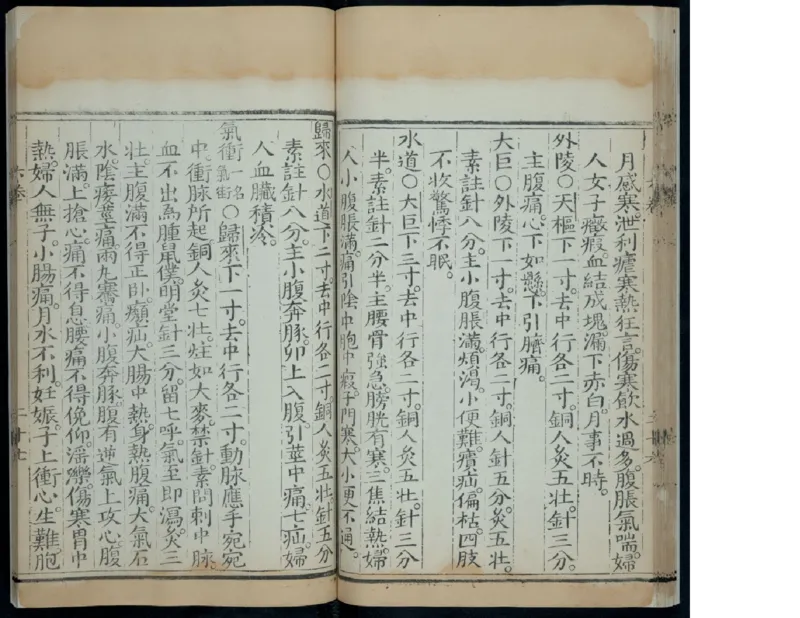 月感寒泄利瘧寒熱狂言傷寒飲水過多腹脹氣喘婦
人女子癥瘕血結成塊漏下赤白月事不時
外陵○天樞下一寸去中行各二寸銅人灸五壯針三分
主腹痛心下如懸下引臍痛
大巨○外陵下一寸去中行各二寸銅人針五分灸五壯
素註針八分主小腹脹滿煩渴小便難㿉疝偏枯四肢
不收驚悸不眠
水道○大巨下三寸去中行各二寸銅人灸五壯針三分
半素註針二分半主腰骨強急膀胱有寒三焦結熱婦
人小腹脹滿痛引陰中胞中瘕子門寒大小便不通
歸來○水道下二寸去中行各二寸銅人灸五壯針五分
素註針八分主小腹奔豚卵上入腹引莖中痛七疝婦
人血臟積冷
氣衝一名氣街○歸來下一寸去中行各二寸動脉應手宛宛
中衝脉所起銅人灸七壯炷如大麥禁針素問刺中脉
血不出為腫鼠僕明堂針三分留七呼氣至即瀉灸三
壯主腹滿不得正卧㿉疝大腸中熱身熱腹痛大氣石
水陰痿莖痛兩丸騫痛小腹奔豚腹有逆氣上攻心腹
脹滿上搶心痛不得息腰痛不得俛仰淫濼傷寒胃中
熱婦人無子小腸痛月水不利妊娠子上衝心生難胞
六卷 二十七